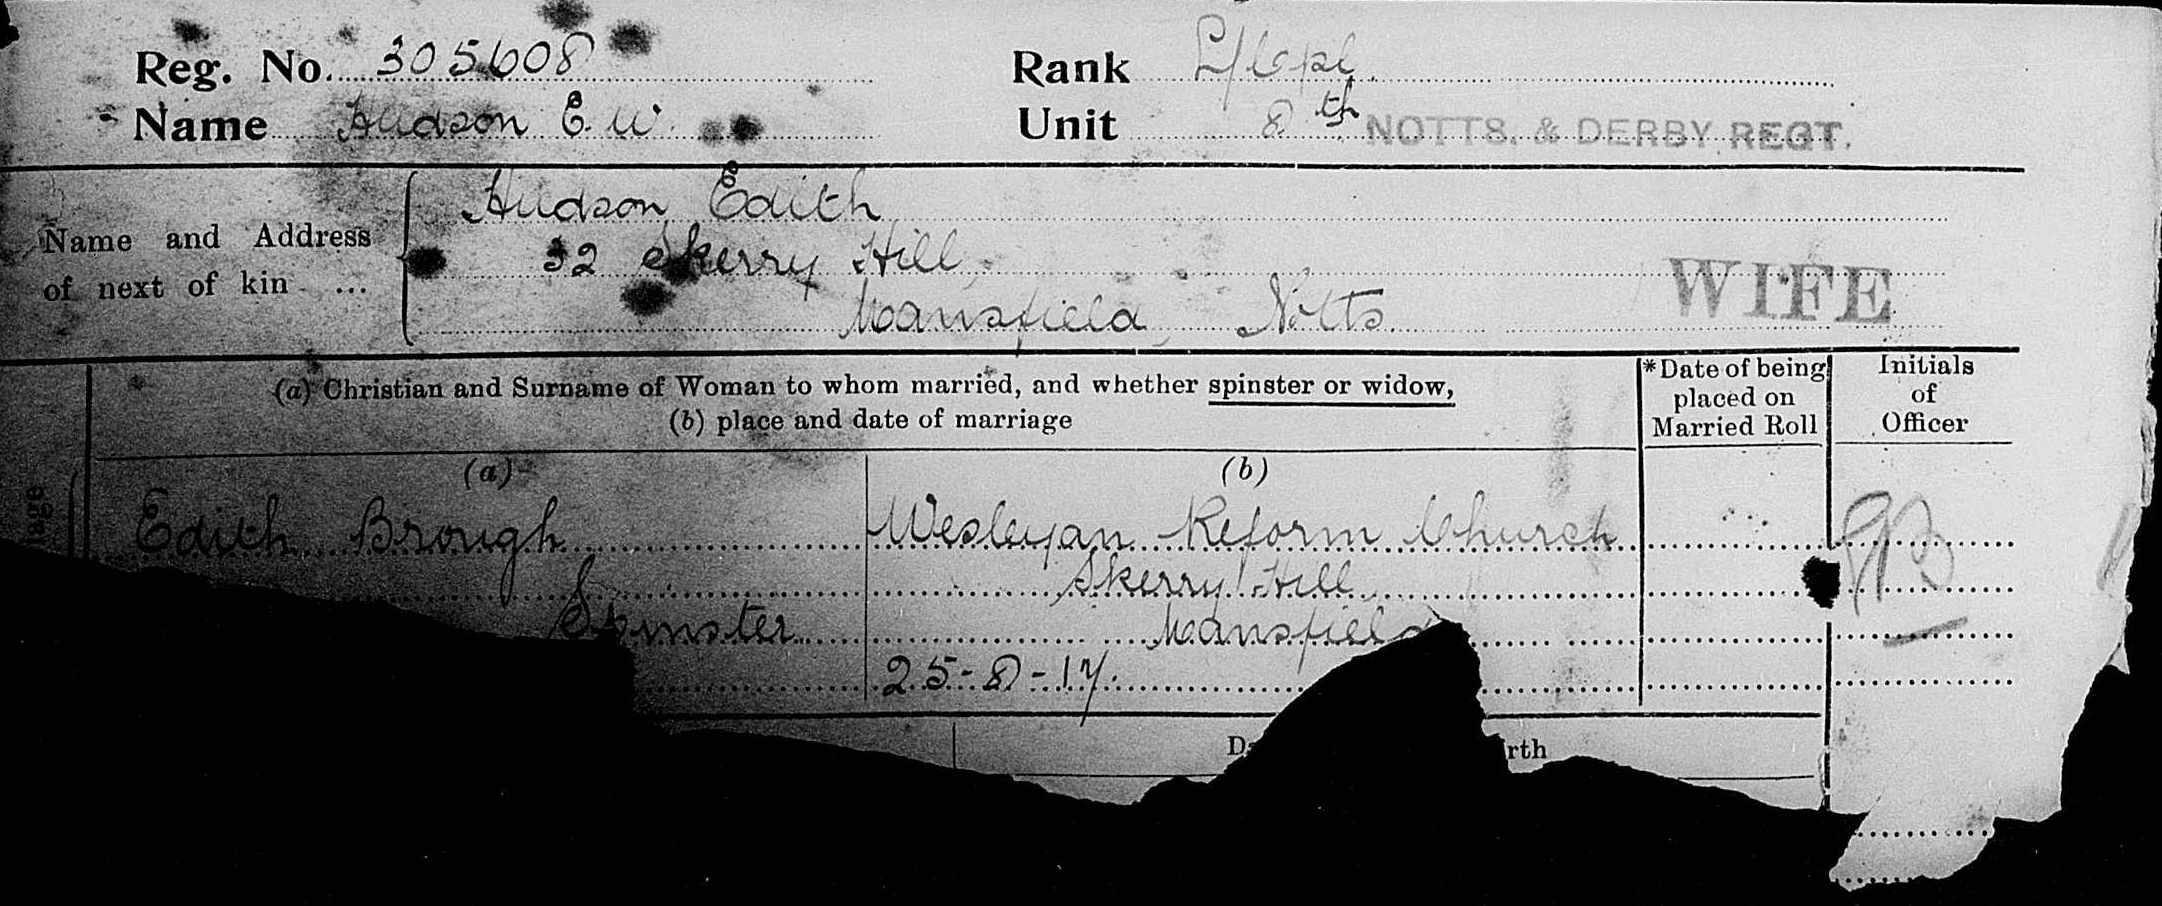 Reg. No. 305608 Rank L/Cpl.
Name Hudson E. W. Unit 8th NOTTS. & DERBY REGT.
Hudson Edith
Name and Address 32 Skerry Hill
of next of kin ... WIFE
Mansfield, Notts
(a) Christian and Surname of Woman to whom married, and whether spinster or widow,
(b) place and date of marriage
*Date of being placed on Married Roll
Initials of Officer
(a) (b)
Edith Brough Wesleyan Reform Church
Skerry Hill
Spinster Mansfield
25-8-17.
rth